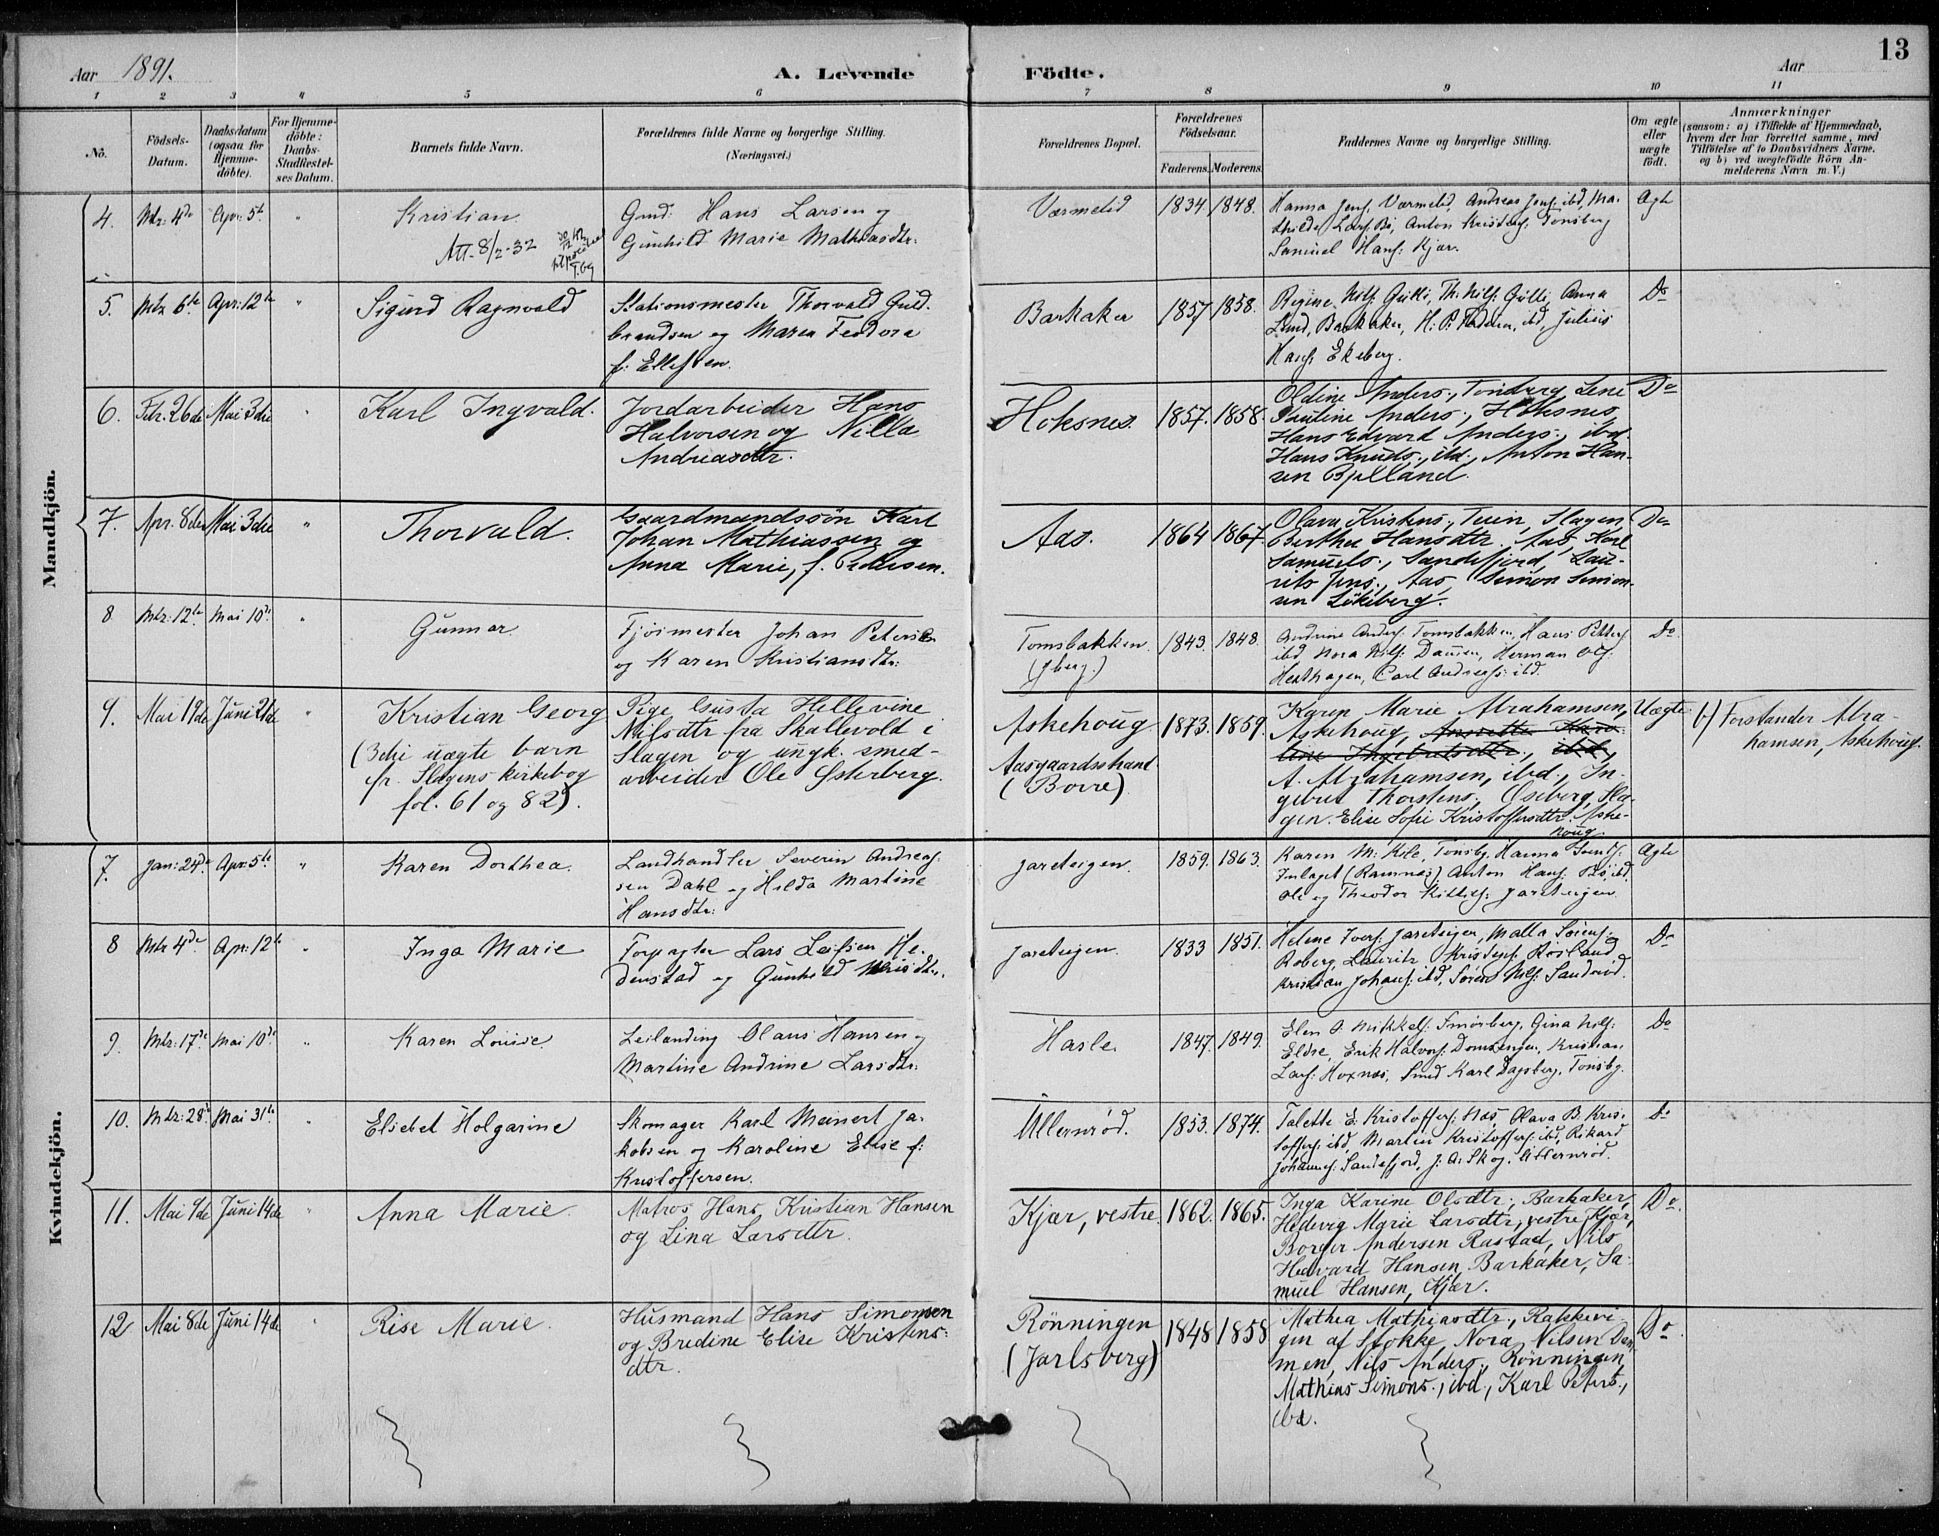 Aar 1891.
A. Levende Födte.
Aar
13
1 2 3 4 5 6 7 8 9 10 11
No.
Födsels-Datum.
Daabsdatum (ogsaa for Hjemme-döbte).
For Hjemme-döbte: Daabs-Stadfæstel-ses Datum.
Barnets fulde Navn.
Forældrenes fulde Navne og borgerlige Stilling.
(Næringsvei.)
Forældrenes Bopæl.
Forældrenes Födselsaar.
Faderens. Moderens.
Faddernes Navne og borgerlige Stilling.
Om ægte eller uægte födt.
Anmærkninger
(saasom: a) i Tilfælde af Hjemmedaab,
hvem der har forrettet samme, med
Tilföielse af to Daabsvidners Navne,
og b) ved uægtefödte Börn An-
melderens Navn m. V.)
Mandkjön.
4. Mrz. 4de Apr. 5te " Kristian
Att. 8/2-32
Gmd. Hans Larsen og
Gunhild Marie Mathiasdtr.
Værmelid 1834 1848.
Hanna Jens. Værmelid, Andreas Jens. ibd, Ma-
thilde Lars. Bö, Anton Kristens. Tönsberg
Samuel Hans. Kjær.
Ægte
5. Mrz 6te Apr. 12te " Sigurd Ragnvald
Stationsmester Thorvald Guld-
brandsen og Maren Feodora
f. Ellefsen.
Barkaker 1857 1858.
Regine Nils. Gulli, Th. Nils. Gulli, Anna
Lund, Barkaker, H. P. ibd, Julius
Hans. Ekeberg.
Do
6. Febr. 26de Mai 3die " Karl Ingvald.
Jordarbeider Hans
Halvorsen og Nilla
Andreasdtr.
Hoksnes. 1857. 1858.
Oldine Anders., Tönsberg, Lene
Pauline Anders., Hoksnes,
Hans Edvard Anders., ibd.
Hans Knuds., ibd., Anton Han-
sen Bjelland.
Do
7. Apr. 8de Mai 3die " Thorvald.
Gaardmandssön Karl
Johan Mathiassen og
Anna Marie, f. Pedersen.
Aas. 1864 1867.
Olava Kristens., Tuin, Slagen,
Berthea Hansdtr. Aas, Karl
Samuels., Sandefjord, Lau-
rits Jens., Aas, Simon Simon-
sen Lökeberg.
Do
8 Mrz. 12te Mai 10de " Gunnar
Fjösmester Johan Petersen
og Karen Kristiansdtr.
Tomsbakken (Jberg.) 1843. 1848.
Andrine Anders. Tomsbakken, Hans Petters.
ibd Nora Nils. Dammen, Herman Ols.
Hesthagen, Carl Andreas. ibd.
Do
9. Mai 19de Juni 21de " Kristian Georg
(3die uægte barn
fr. Slagens kirkebog
fol. 61 og 82).
Pige Gusta Hellevine
Nilsdtr fra Skallevold i
Slagen og ungk. smed-
arbeider Ole Østerberg.
Askehoug
Aasgaardsstrand
(Borre)
1873. 1859.
Karen Marie Abrahamsen,
Askehoug,
A. Abrahamsen, ibd., In-
gebret Thorstens., Oseberg, Sla-
gen. Elise Sofie Kristoffersdtr. Aske-
houg
Uægte
b) Forstander Abra-
hamsen, Askehoug.
Kvindekjön.
7. Jan. 24de Apr. 5te " Karen Dorthea.
Landhandler Severin Andreas-
sen Dahl og Hilda Martine
Hansdtr.
Jareteigen. 1859. 1863.
Karen M. Kile, Tönsbg. Hanna Svends.
Inlaget (Ramnæs) Anton Hans. Bö, ibd.
Ole og Theodor Kittils. Jareteigen.
Ægte
8 Mrz 4de Apr. 12te " Inga Marie
Forpagter Lars Leifsen He-
denstad og Gunhild Nilsdtr.
Jareteigen. 1833 1851.
Helene Ivers. Jareteigen, Malla Sörens.
Roberg, Lauritz Kristens. Rosland,
Kristian Johans. ibd, Sören Nils. Sanderöd.
Do
9. Mrz. 17de Mai 10de " Karen Louise.
Leilænding Olaus Hansen og
Martine Andrine Larsdtr.
Hasle. 1847. 1849.
Elen O. Mikkels. Smörberg, Gina Nils.
Eldre, Erik Halvors. Domsengen, Kristian
Lars. Hoxnæs, Smed Karl Dagsberg, Tönsbg.
Do
10. Mrz. 28de Mai 31te " Elisebet Holgarine
Skomager Karl Meinert Ja-
kobsen og Karoline Elise f.
Kristoffersen.
Ullernröd. 1853. 1874.
Talette E. Kristoffers. Næs, Olava B. Kris-
toffers. ibd Martin Kristoffers. ibd, Rikard
Johannes. Sandefjord, J. A. Skog, Ullernröd.
Do
11. Mai 9de Juni 14de " Anna Marie
Matros Hans Kristian Hansen
og Lina Larsdtr.
Kjær, vestre 1862. 1865.
Inga Karine Olsdtr., Barkaker,
Hedevig Marie Larsdtr, vestre Kjær,
Borger Andersen Rastad, Nils
Hedvard Hansen Barkaker, Sa-
muel Hansen, Kjær.
Do.
12 Mai 8de Juni 14de " Rise Marie.
Husmand Hans Simonsen
og Bredine Elise Kristens-
dtr.
Rönningen
(Jarlsberg)
1848 1858
Mathea Mathiasdtr, Rakkevi-
gen af Stokke, Nora Nilsen Dam-
men, Nils Anders., Rönningen
Mathias Simons., ibd., Karl Peters.,
ibd.
Do.